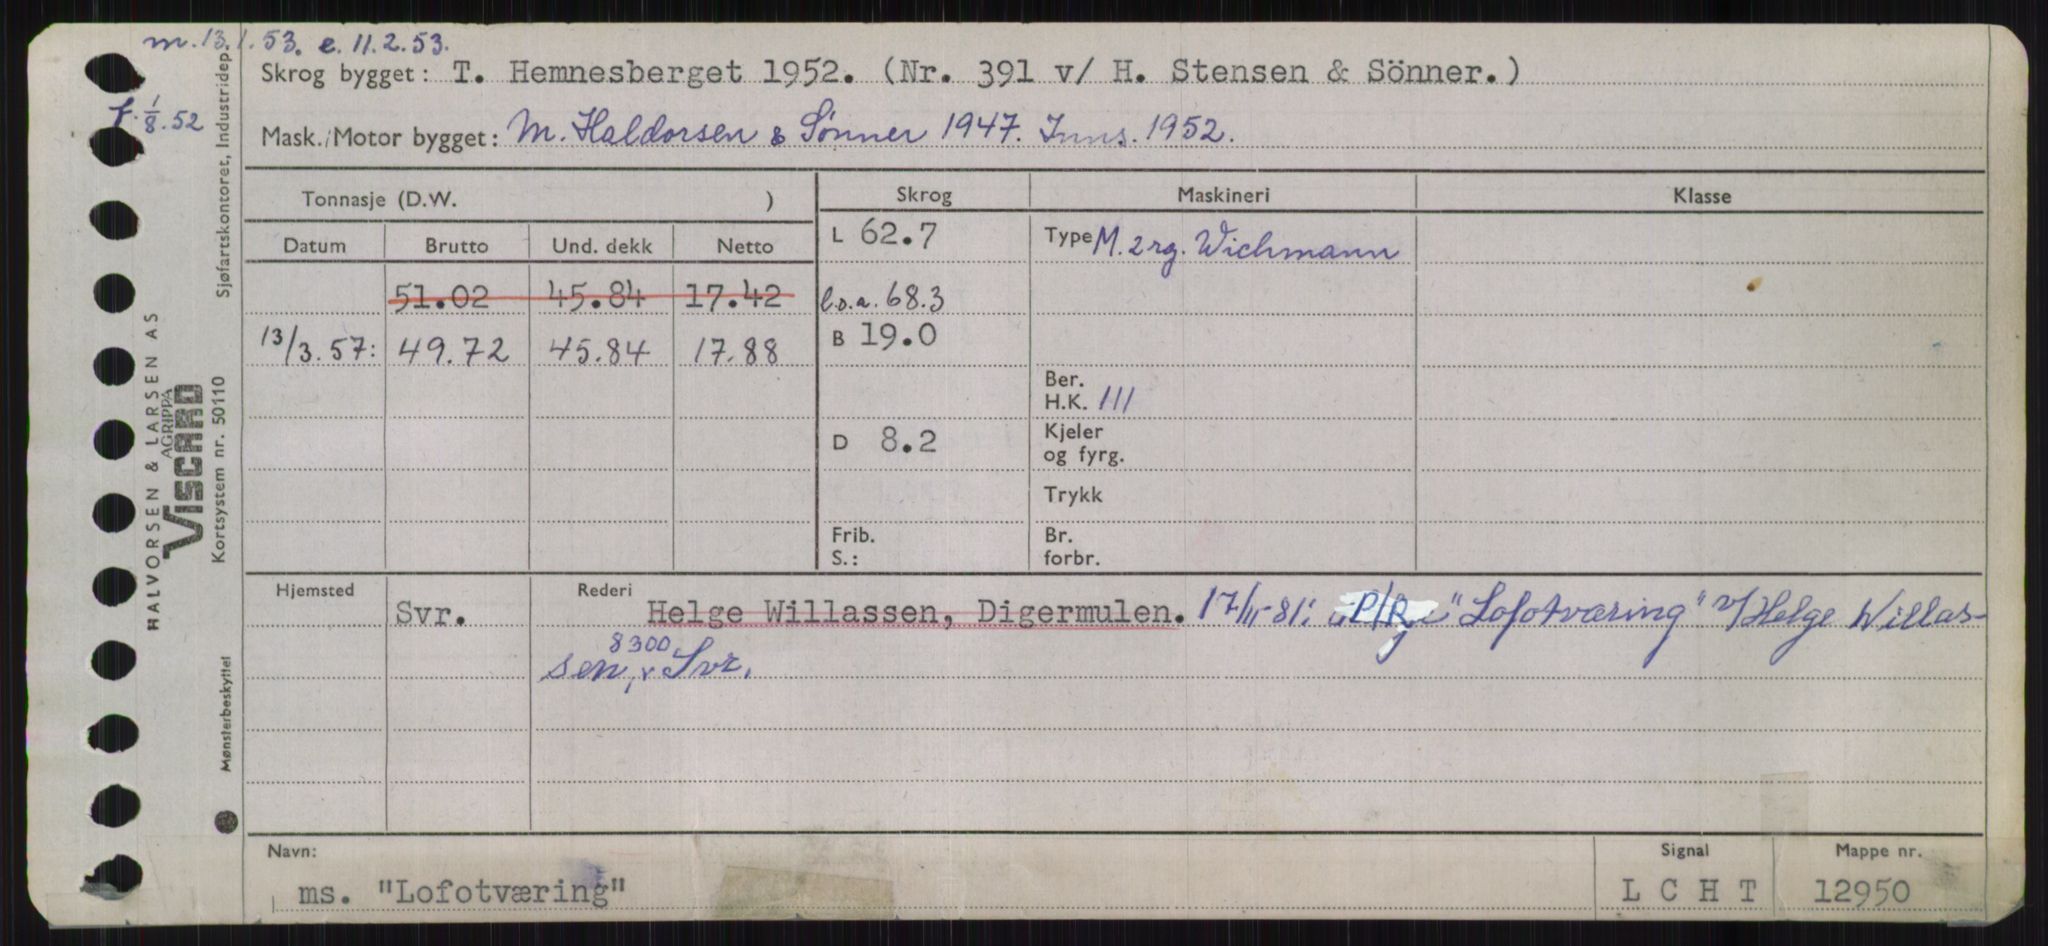 m. 13.1.53. e. 11.2.53.
Skrog bygget: T. Hemnesberget 1952. (Nr. 391 v/ H. Stensen & Sönner.)
f. 1/8.52
Mask./Motor bygget: M. Haldorsen & Sønner 1947. Inns. 1952.
Tonnasje (D.W. ) Skrog Maskineri Klasse
Datum Brutto Und. dekk Netto L 62.7 Type M. 2rg. Wichmann
51.02 45.84 17.42 l.o.a. 68.3
13/3.57: 49.72 45.84 17.88 B 19.0
Ber.
H.K. 111
D 8.2 Kjeler
og fyrg.
Trykk
Frib. Br.
S.: forbr.
Hjemsted Rederi
Svr. Helge Willassen, Digermulen. 17/11-81: P/R "Lofotværing" v/Helge Willas-
sen, 8300 Svr.
Navn: Signal Mappe nr.
ms. "Lofotværing" L C H T 12950
Sjøfartskontoret, Industridep.
HALVORSEN & LARSEN AS
AGRIPPA
VISCARD
Kortsystem nr. 50110
Mønsterbeskyttet